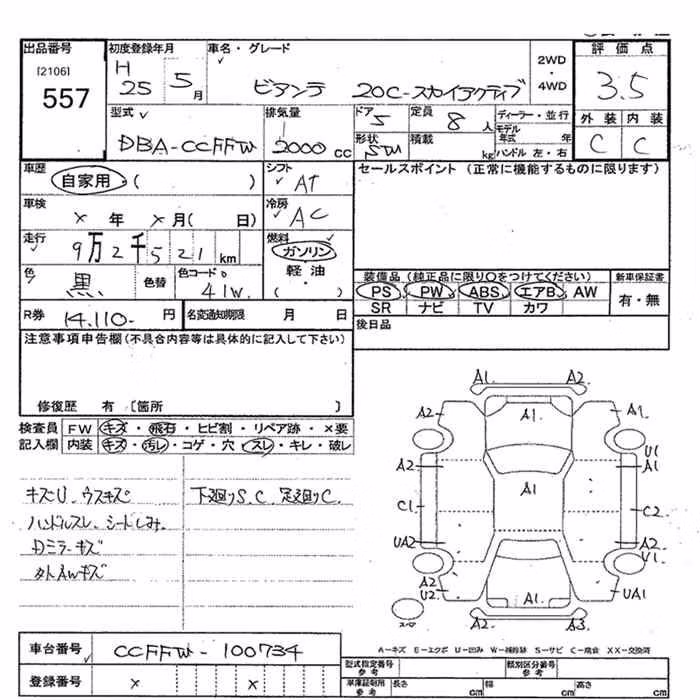 出品番号 初度登録年月 車名・グレード 評価点
[2106] 557 H 25 5月 ビアンテ 20C-スカイアクティブ 2WD・4WD 3.5
型式 排気量 ドア 定員 ディーラー・並行 外装 内装
DBA-CCFFW 2000 CC 5 8人 モデル年式 年 C C
形状 STW 積載 kg ハンドル 左・右
車歴 シフト セールスポイント (正常に機能するものに限ります)
自家用・( ) AT
車検 冷房
× 年 × 月( 日) AC
走行 燃料
9万2千521km ガソリン
色 黒 色替 色コード 41W. 軽油 ( )
装備品 (純正品に限り○をつけてください) 新車保証書
PS PW ABS エアB AW 有・無
SR ナビ TV カワ
R券 14.110- 円 名変通知期限 月 日 後日品
注意事項申告欄 (不具合内容等は具体的に記入して下さい)
修復歴 有 〔箇所 〕
検査員 FW キズ・飛石・ヒビ割・リペア跡・×要
記入欄 内装 キズ・汚レ・コゲ・穴・スレ・キレ・破レ
キズU、ウスキズ 下廻りS.C, 足廻りC.
ハンドルスレ、シートしみ.
Dミラーキズ
外AWキズ
A1. A2
A2 A1 A1.
U1
A2 A1
A1
C1 C2
UA2 A2
U1
A2
U2 A1 UA1
A2 A3
スペア
A－キズ E－エクボ U－凹み W－補修跡 S－サビ C－腐食 XX－交換済
車台番号 CCFFW-100734
型式指定番号 参考 類別区分番号 参考
登録番号 × ×
車庫証明用 参考 長さ cm 幅 cm 高さ cm